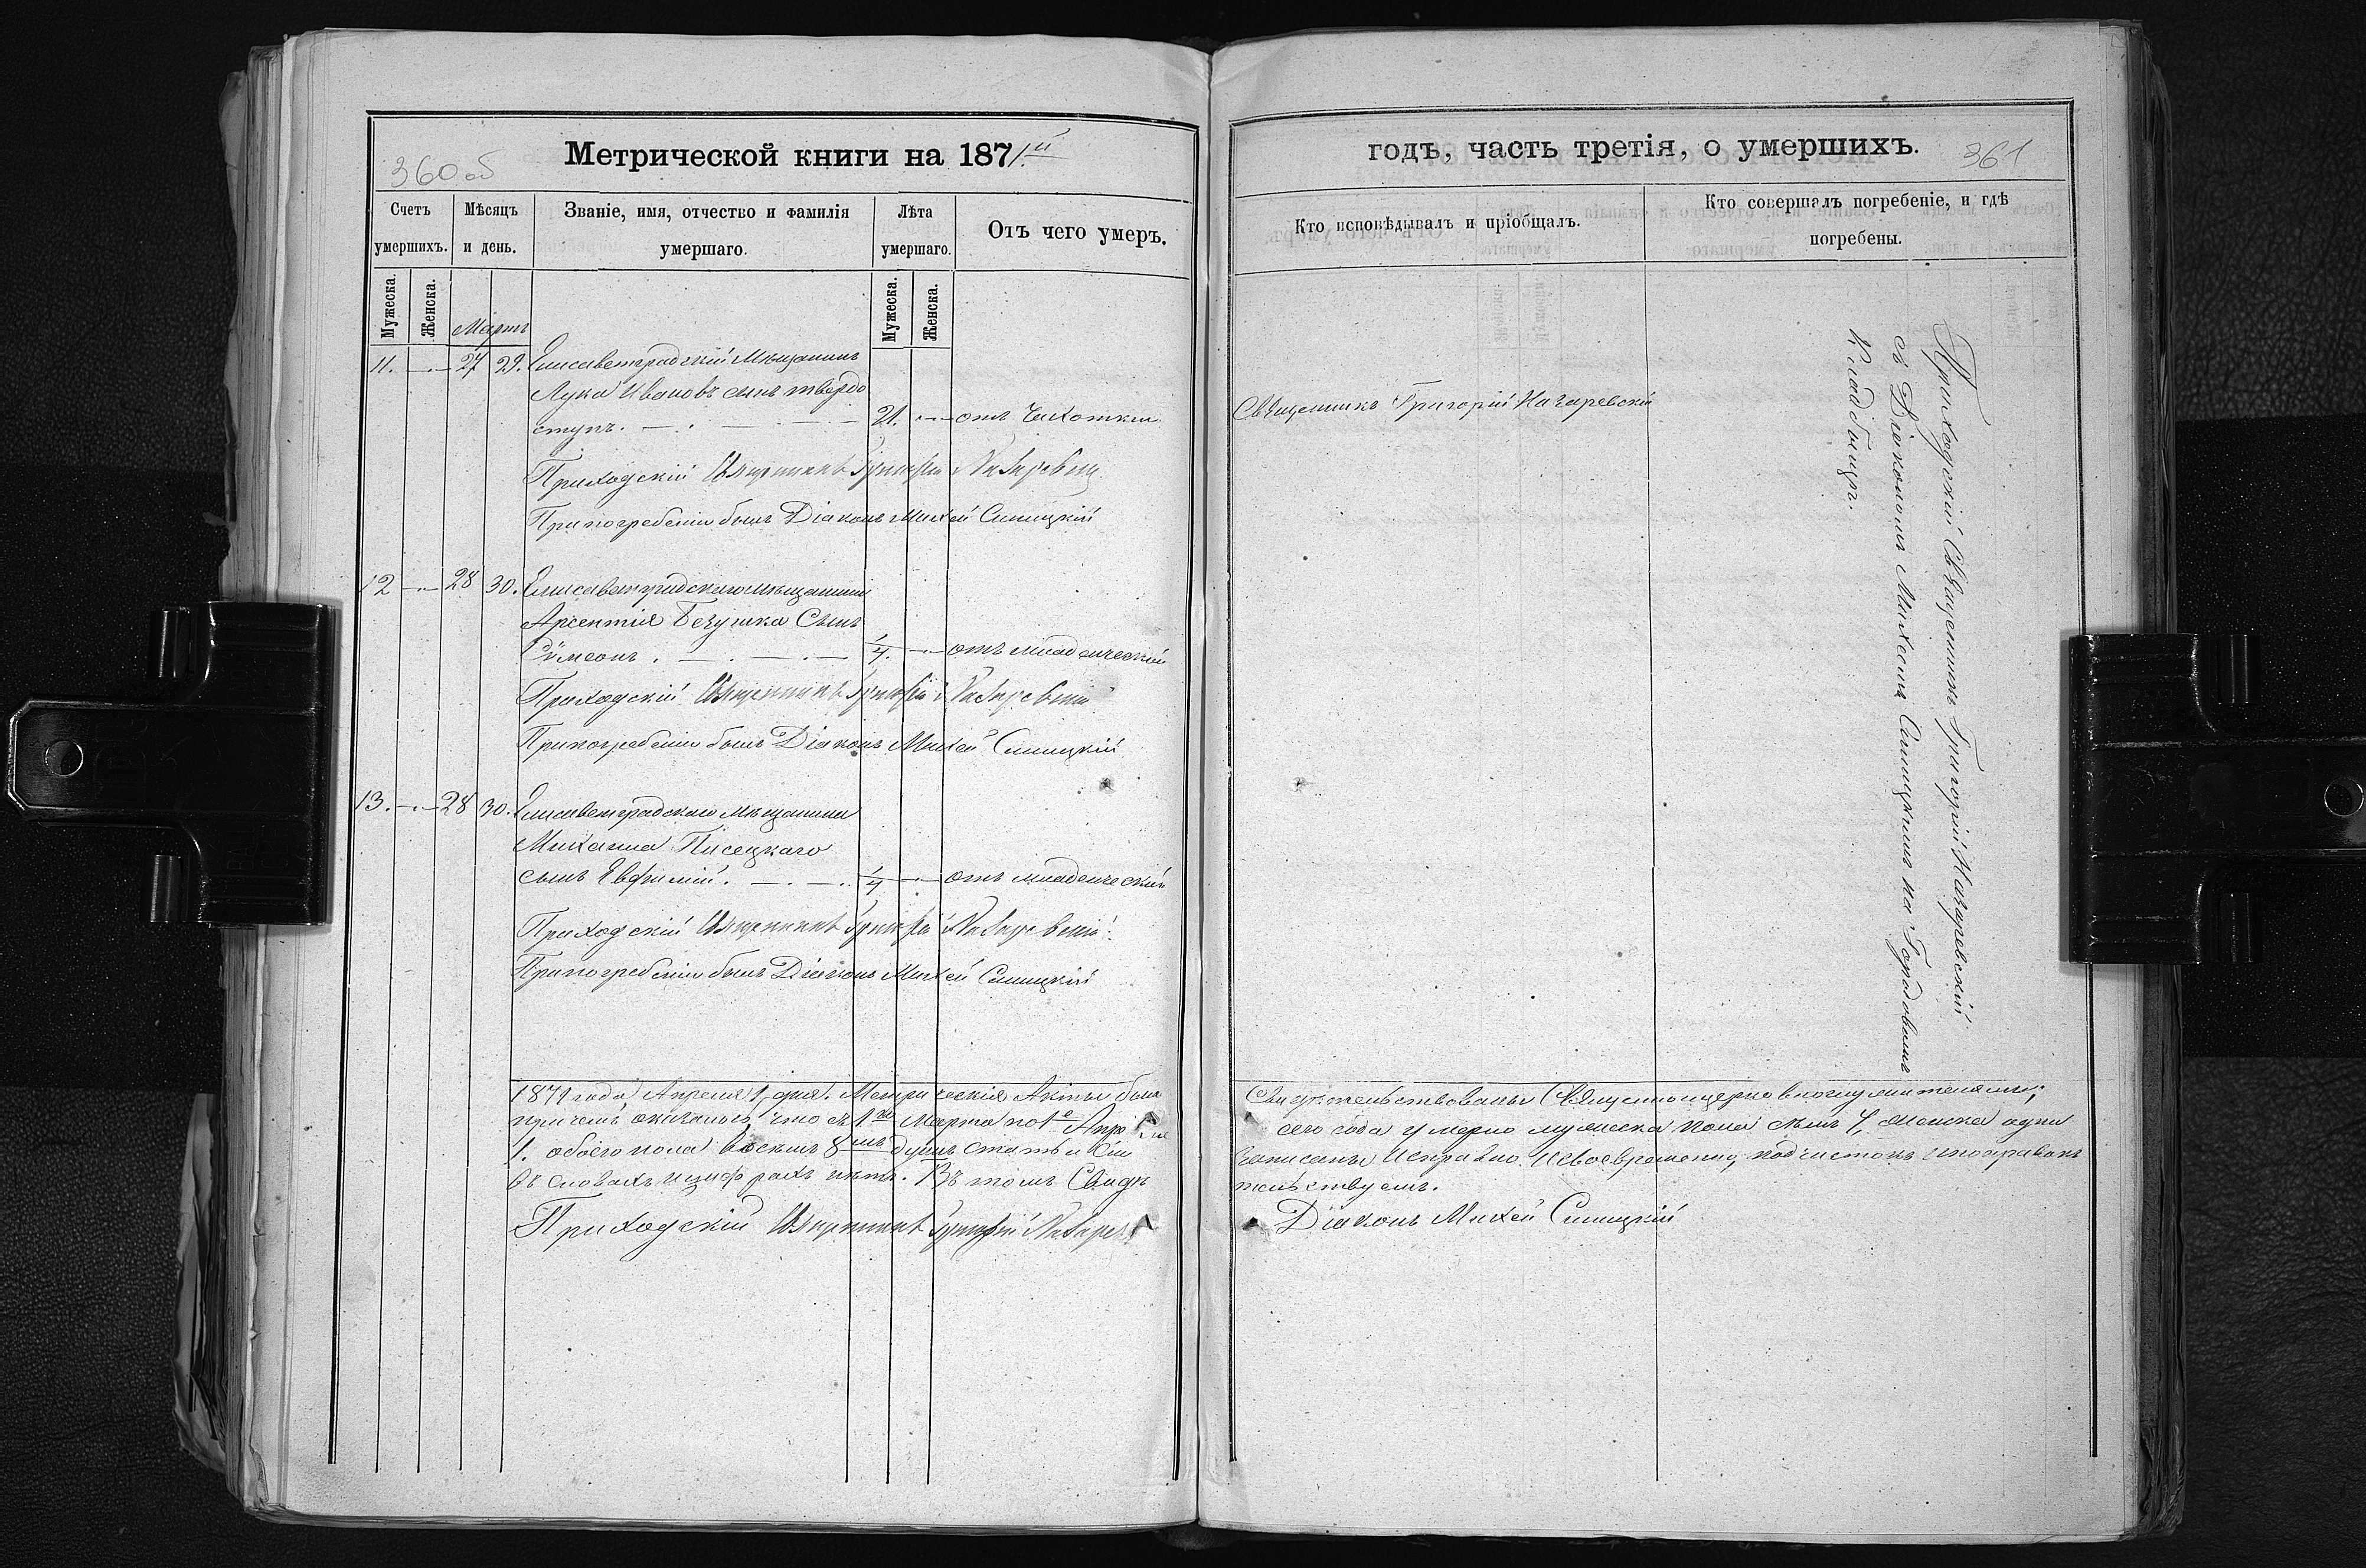 360 об
Метрической книги на 1871й
Счетъ умершихъ.
Мѣсяцъ и день.
Званіе, имя, отчество и фамилія умершаго.
Лѣта умершаго.
Отъ чего умеръ.
Мужеска.
Женска.
Мужеска.
Женска.
Мартъ
11. 27 29. Елисаветградскій Мѣщанинъ
Лука Ивановъ сынъ твердо
ступъ. 21. отъ Чахотки
Приходскій Священникъ Григорій Назаревскій
При погребеніи былъ Діаконъ Михей Синицкій
12 28 30. Елисаветградскаго мѣщанина
Арсентія Сынъ
Сѵмеонъ. 1/4. отъ младенческой
Приходскій Священникъ Григорій Назаревскій
При погребеніи былъ Діаконъ Михей Синицкій
13. 28 30. Елисаветградскаго Мѣщанина
Михаила Писецкаго
сынъ Евфимій. 1/4 отъ младенческой
Приходскій Священникъ Григорій Назаревскій
При погребеніи былъ Діаконъ Михей Синицкій
1871 года, Апреля 1, дня. Метрическія Акты были
причемъ оказалось, что съ 1го Марта по 1е Апреля
1. обоего пола восемь 8мь душъ
въ словахъ и цифрахъ нѣтъ. Въ томъ Свидѣ
Приходскій Священникъ Григорій
годъ, часть третія, о умершихъ.
361
Кто исповѣдывалъ и пріобщалъ.
Кто совершалъ погребеніе, и гдѣ погребены.
Священникъ Григорій Назаревскій
Приходскій Священникъ Григорій Назаревскій
съ Діакономъ Михеемъ Синицкимъ на Городовомъ
Кладбищѣ.
Свидѣтельствованы Священноцерковнослужителями;
сего года умерло мужеска пола семь 7, женска одна
записаны Исправно И Своевременно, подчистокъ и поправокъ
тельствуемъ.
Діаконъ Михей Синицкій